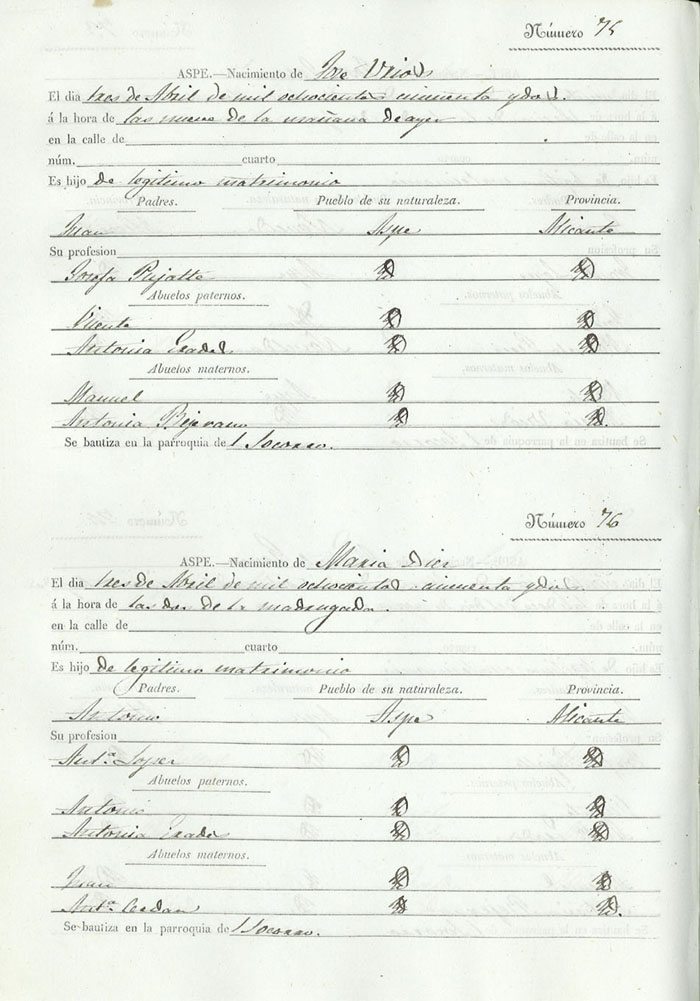 Número 75
ASPE.—Nacimiento de Jose
El dia tres de Abril de mil ochocientos cincuenta y dos.
á la hora de las nueve de la mañana de ayer
en la calle de
núm. cuarto
Es hijo de legitimo matrimonio
Padres. Pueblo de su naturaleza. Provincia.
Juan Aspe Alicante
Su profesion
Josefa Pujalte
Abuelos paternos.
Vicente
Antonia
Abuelos maternos.
Manuel
Antonia Bejerano
Se bautiza en la parroquia de l Socorro.
Número 76
ASPE.—Nacimiento de Maria Dies
El dia tres de Abril de mil ochocientos cincuenta y dos.
á la hora de las dos de la madrugada.
en la calle de
núm. cuarto
Es hijo de legitimo matrimonio
Padres. Pueblo de su naturaleza. Provincia.
Antonio Aspe Alicante
Su profesion
Ant.ª Lopez
Abuelos paternos.
Antonio
Antonia
Abuelos maternos.
Juan
Ant.ª Cerdan
Se bautiza en la parroquia de l Socorro.